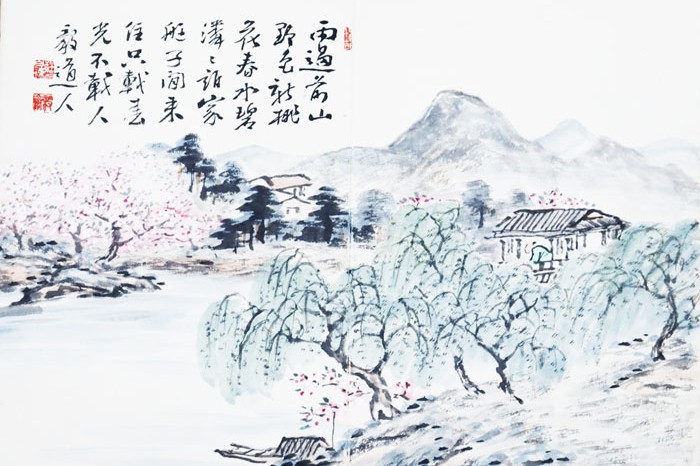 雨過前山
野色新桃
花春水碧
潾々誰家
艇子閒来
往只載春
光不載人
毅道人